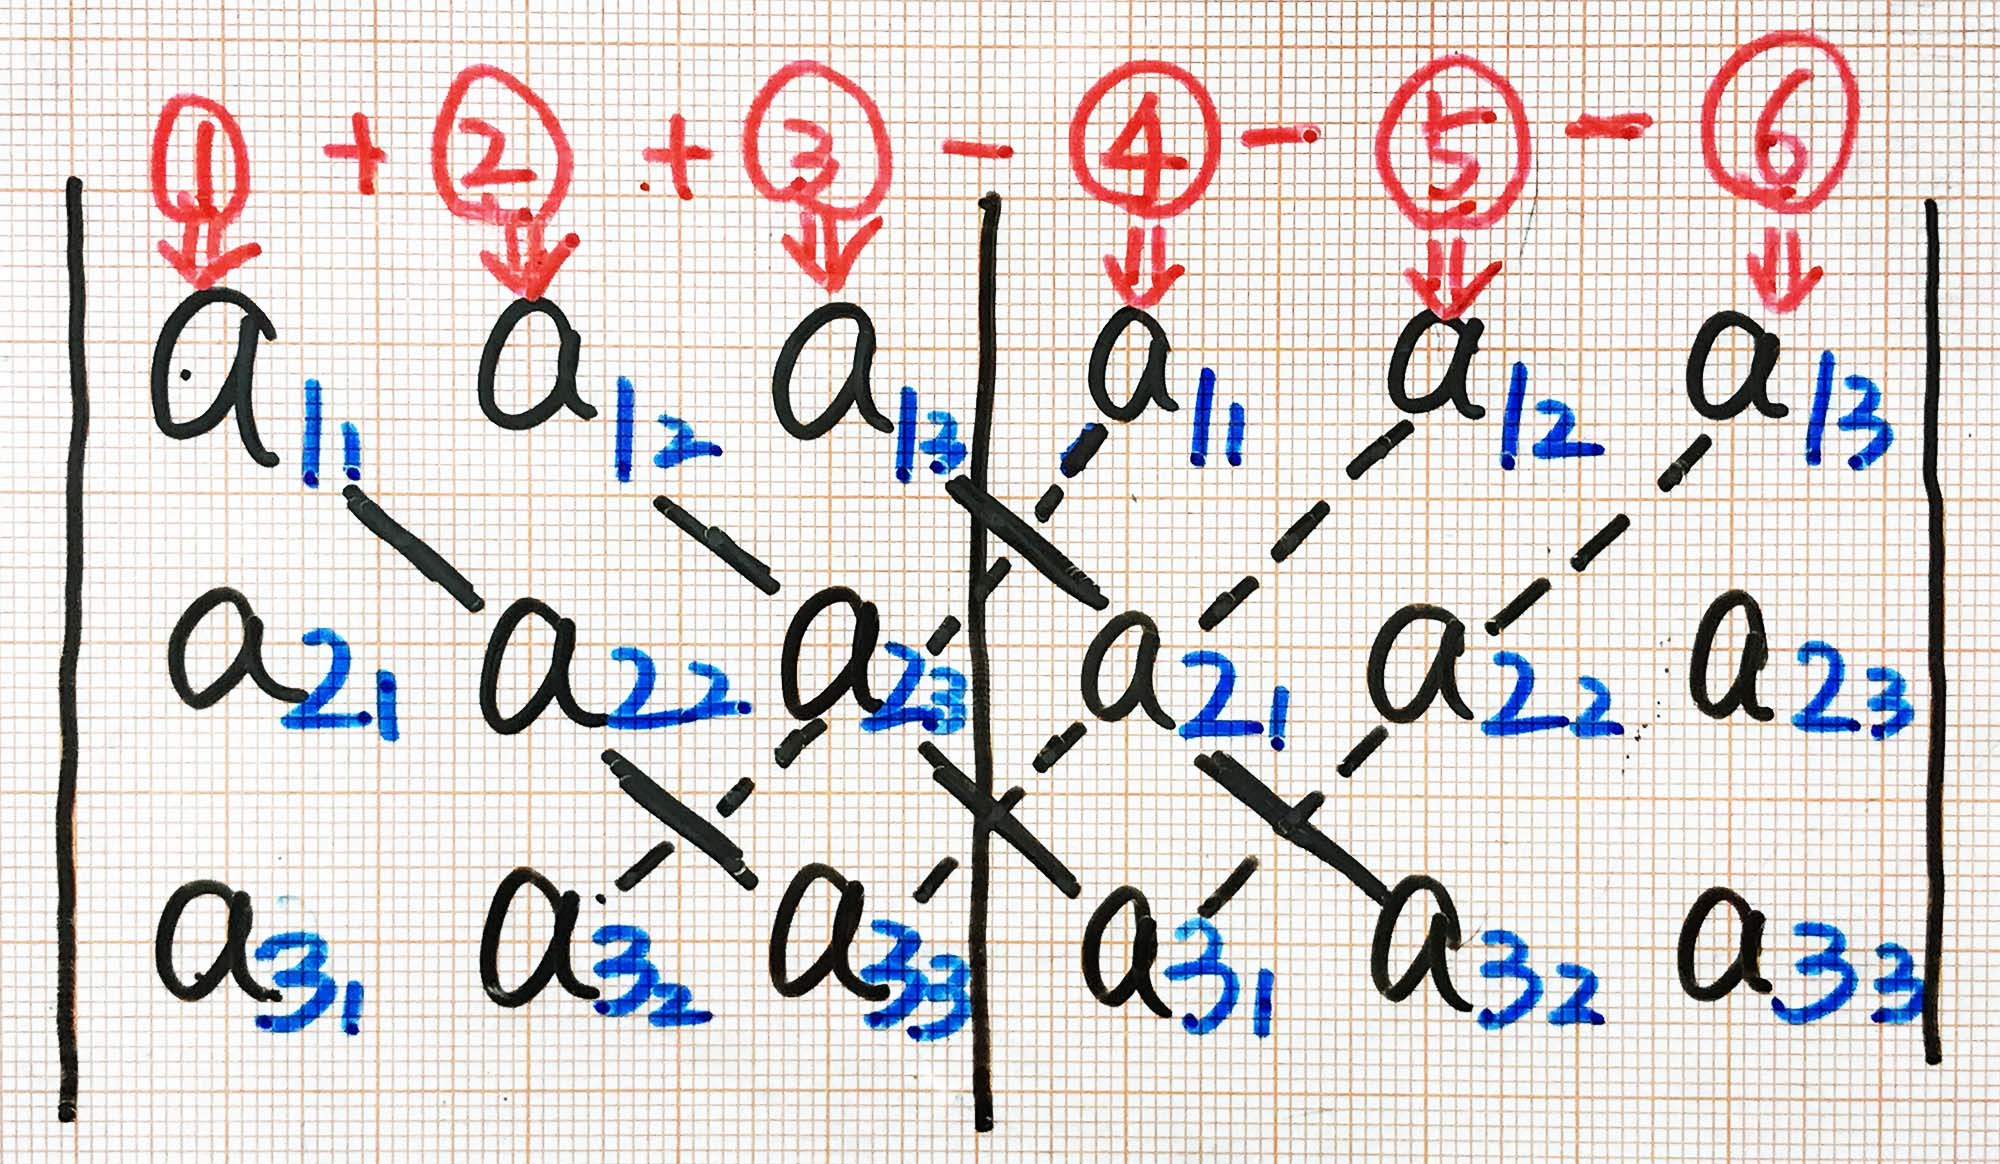 ① + ② + ③ - ④ - ⑤ - ⑥
a11 a12 a13 a11 a12 a13
a21 a22 a23 a21 a22 a23
a31 a32 a33 a31 a32 a33